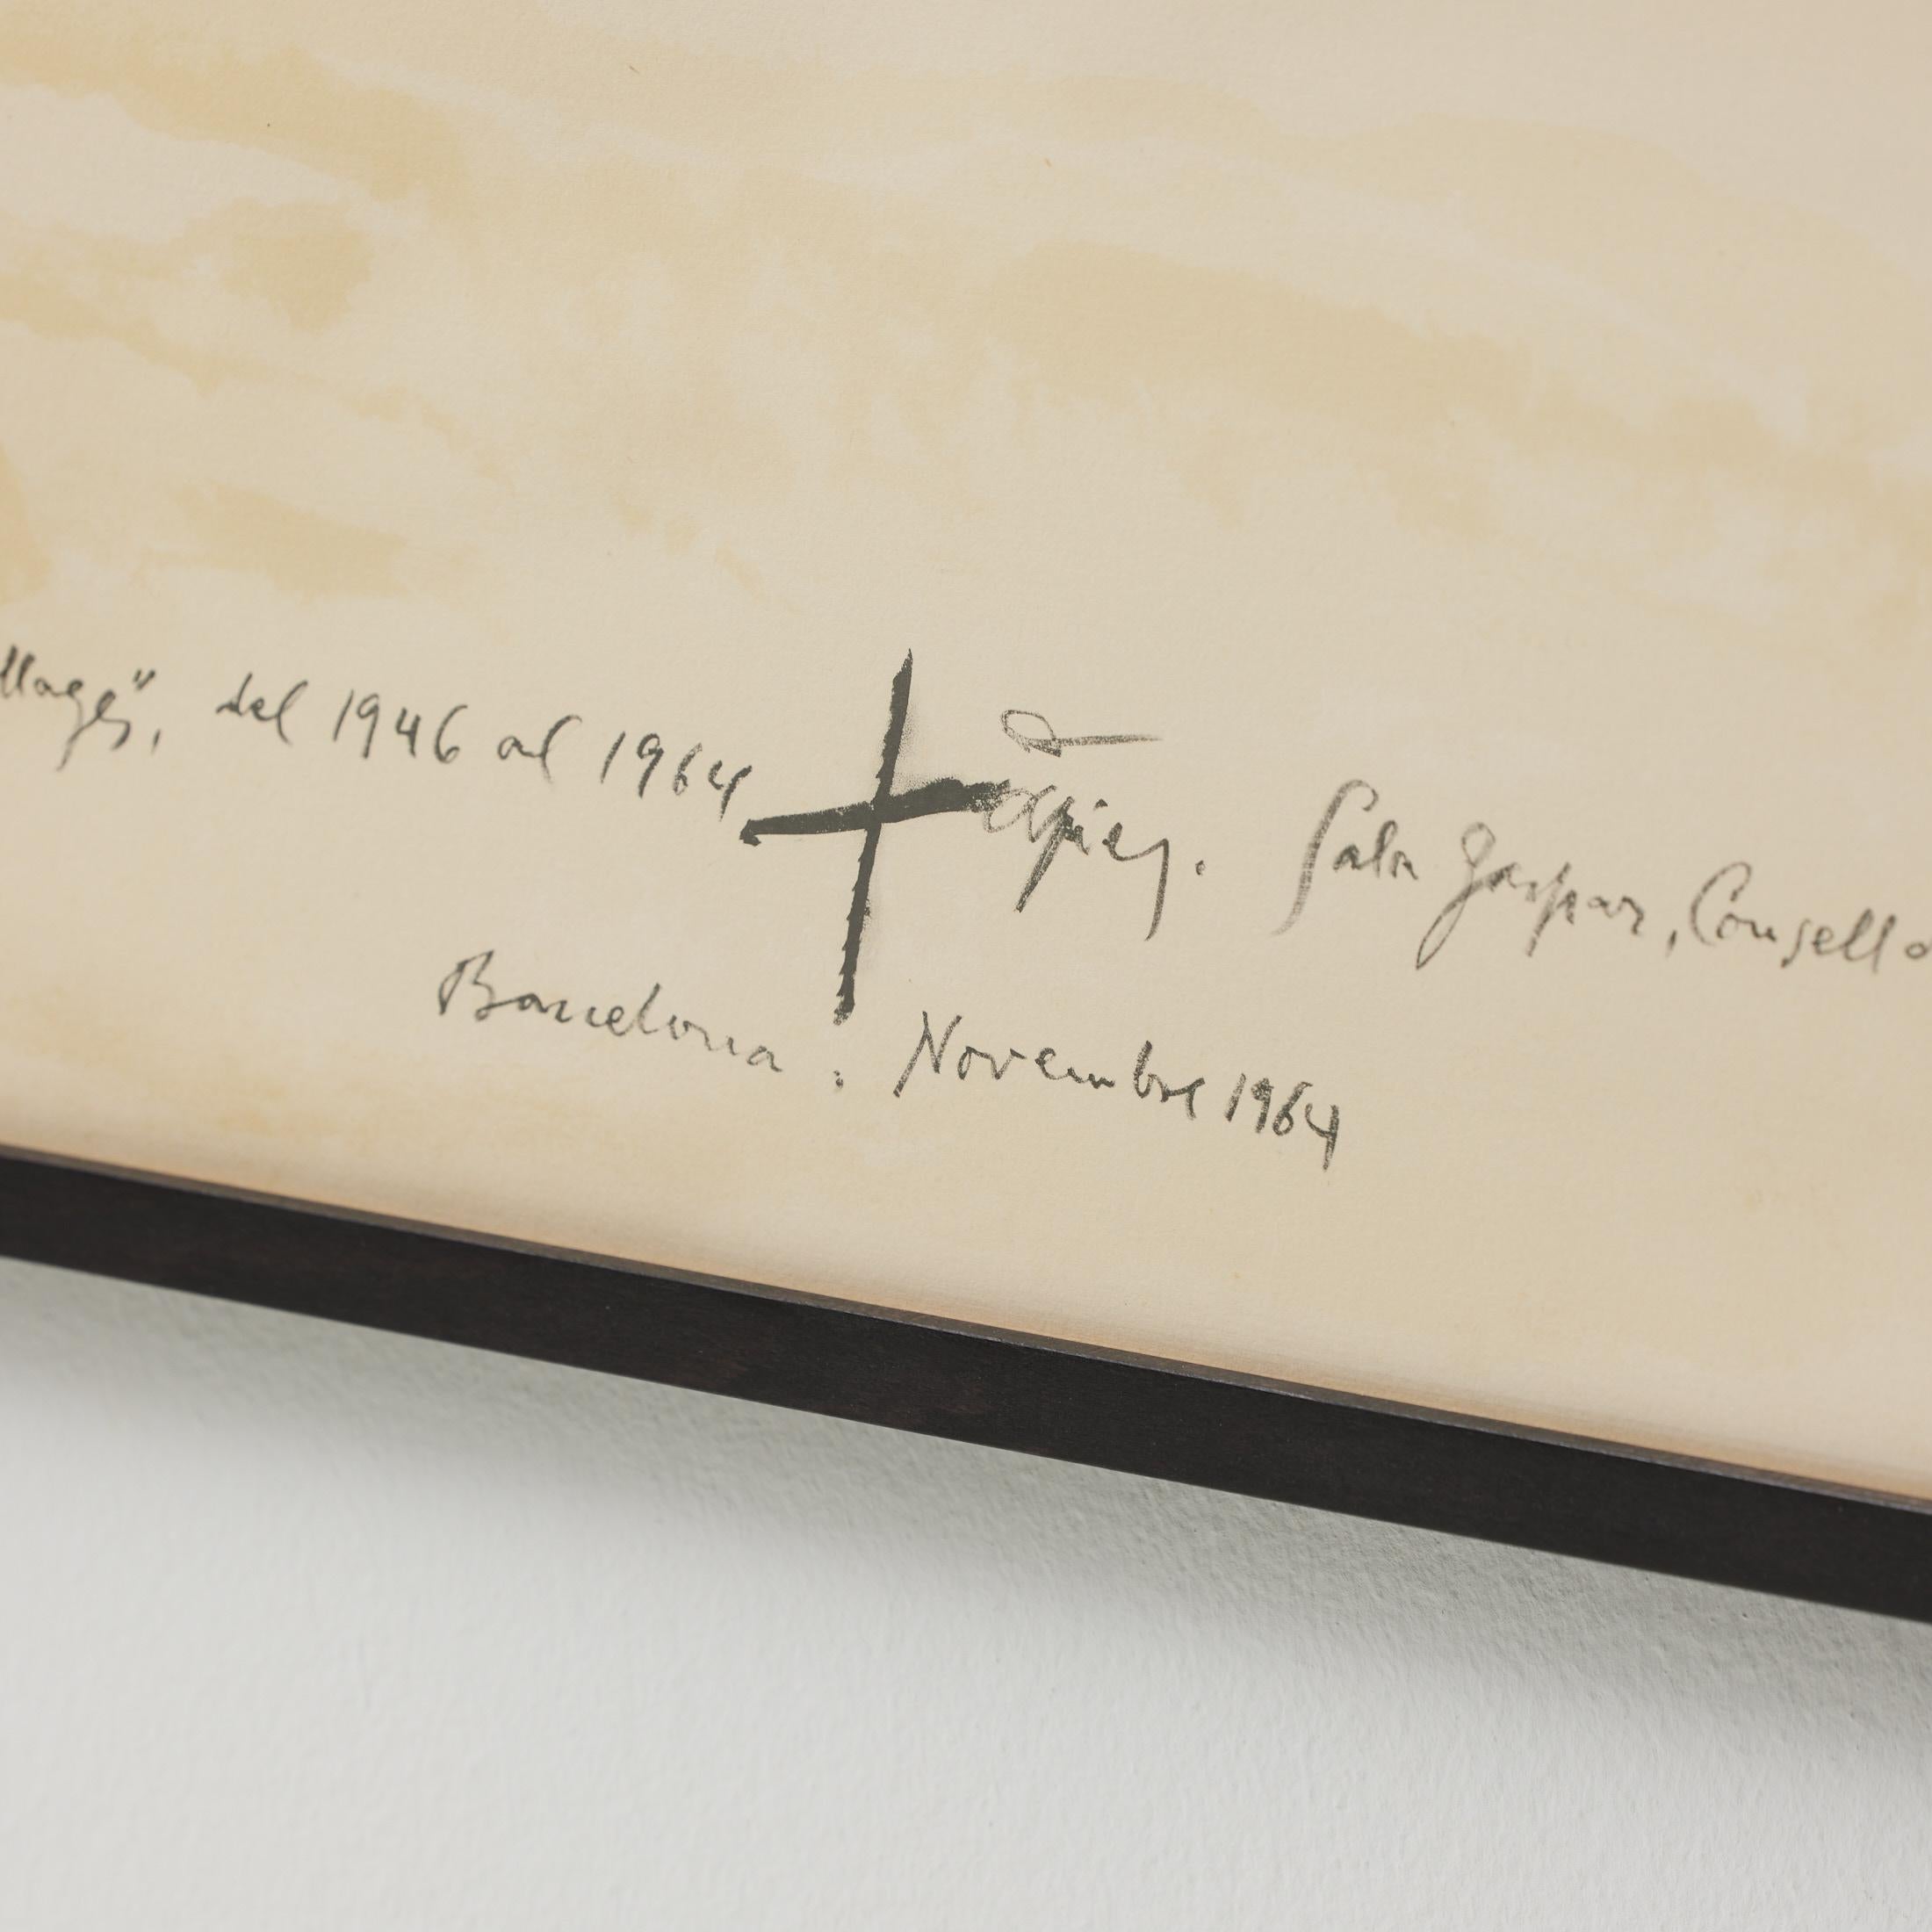 llages", del 1946 al 1964 Tàpies. Sala Gaspar, Consell d
Barcelona. Novembre 1964